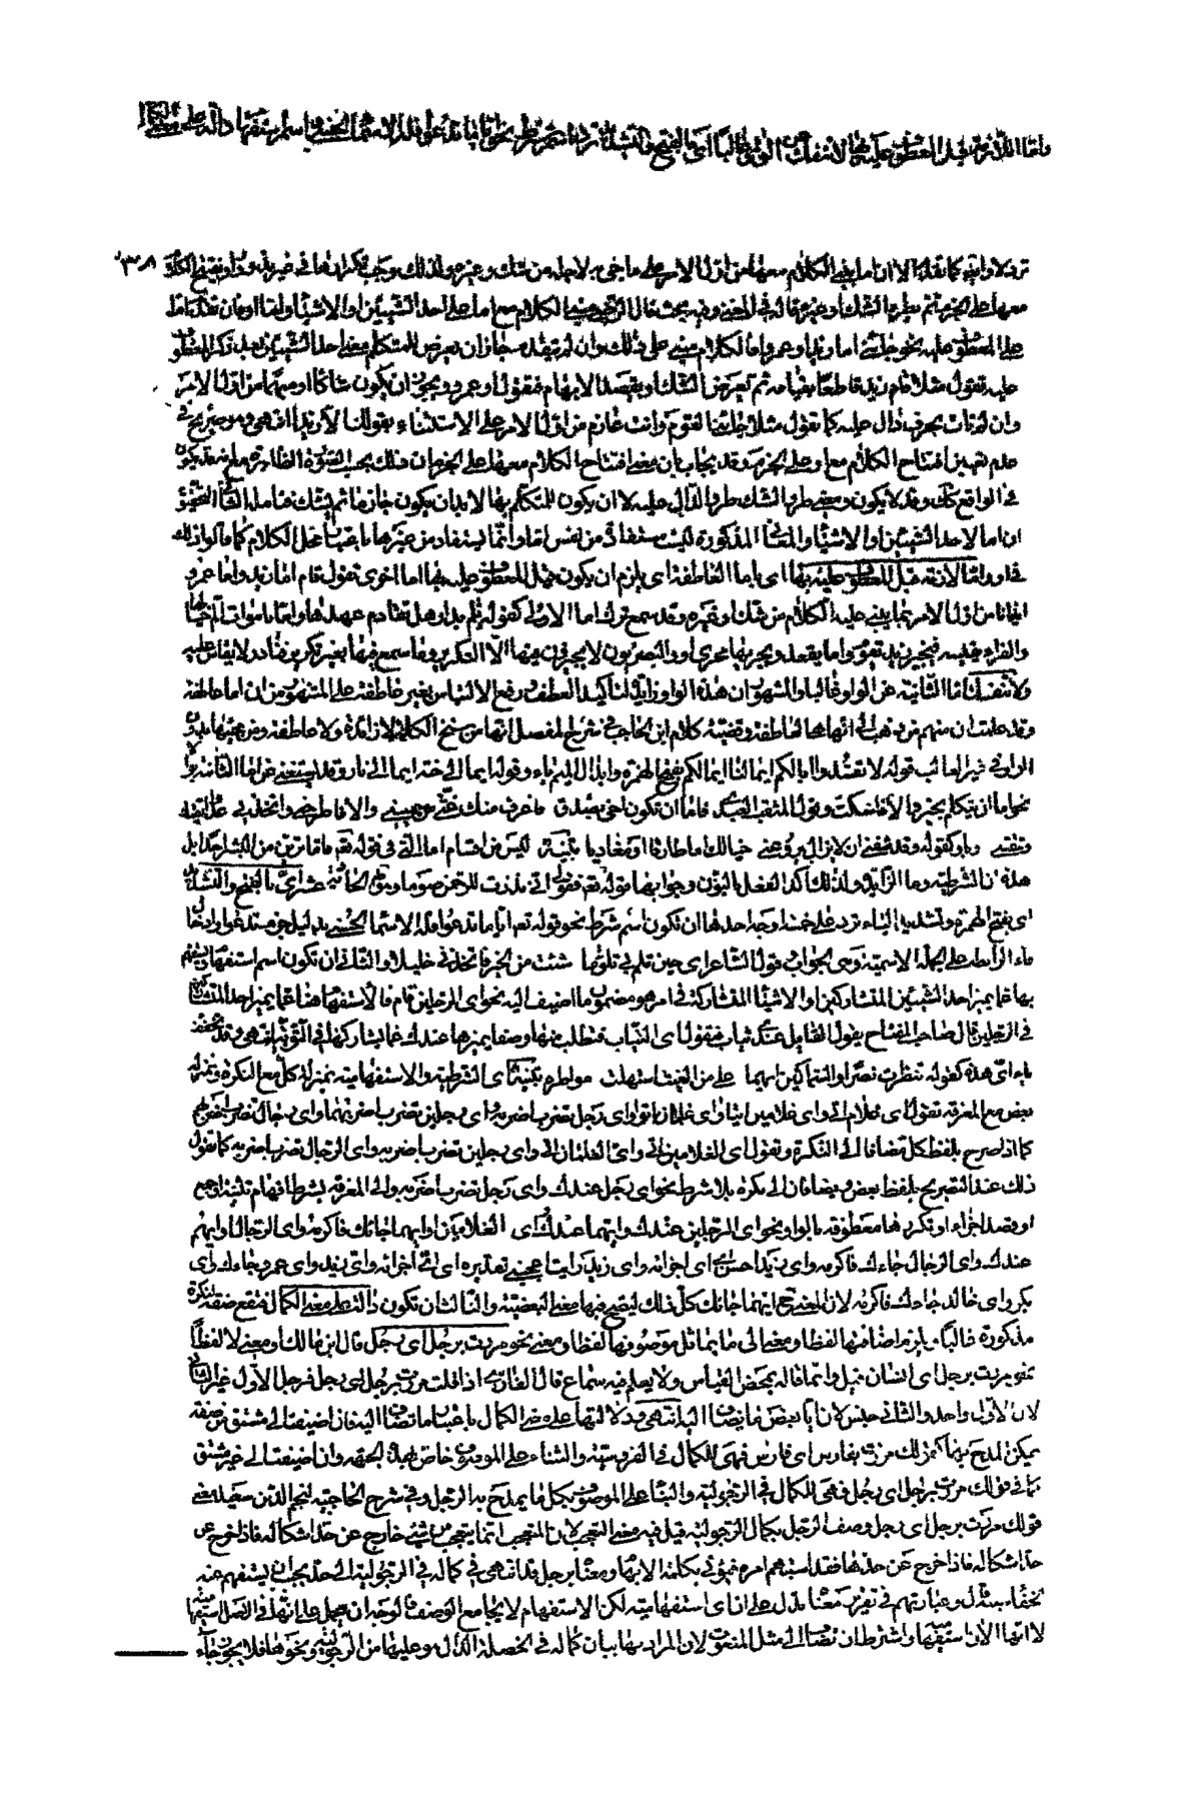 واما اللازمة قبل المعطوف عليه بها ولا تنفك عن الواو غالبا اى بالفتح والتشديد ترد اسم شرط نحو اياما تدعوا فله الاسماء الحسنى واسم استفهام دالة على معنى الكمال
ترد لاو انه كما تقدم الا ان اما يبنى الكلام معها من اول الامر على ما جئ بها لاجله من شك وغيره ولذلك وجب تكرارها فى غير ندور واو يفتتح الكلام
معها على الجزم ثم يطرء الشك او غيره قاله فى المغنى وفيه بحث قال الرضى مبنى الكلام مع اما على احد الشيئين او الاشياء واما او فان تقدم اما
على المعطوف عليه نحو جائنى اما زيد او عمرو فالكلام مبنى على ذلك وان لم يتقدم جاز ان يعرض للمتكلم معنى احد الشيئين بعد ذكر المعطوف
عليه تقول مثلا قام زيد قاطعا بقيامه ثم تعرض الشك او يقصد الابهام فتقول او عمرو ويجوز ان يكون شاكا او مبهما من اول الامر
وان لم تأت بحرف دال عليه كما تقول مثلا جائنى القوم وانت عازم من اول الامر على الاستثناء بقولك الا زيدا انتهى وهو صريح فى
عدم تعيين افتتاح الكلام مع او على الجزم وقد يجاب بان معنى افتتاح الكلام معها على الجزم ان ذلك بحسب الصورة الظاهرة ثم قد يكون
فى الواقع كك وقد لا يكون ومعنى طرو الشك طرو الدال عليه لا ان يكون المتكلم بها لابد ان يكون جازما ثم يشك فتامله الثانى التحقيق
ان اما لاحد الشيئين او الاشياء والمعانى المذكورة ليست مستفادة من نفس اما وانما تستفاد من غيرها باعتبار محل الكلام كما قالوا ذلك
فى او واما لازمة قبل المعطوف عليه بها اى باما العاطفة اى يلزم ان يكون قبل المعطوف عليه بها اما اخرى تقول قام اما زيد واما عمرو
ايذانا من اول الامر بما يبنى عليه الكلام من شك او غيره وقد سمع ترك اما الاولى كقوله تلم بدار قد تقادم عهدها واما باموات الم خيالها
والفراء يقيسه فيجيز زيد يقوم واما يقعد ويجريها مجرى او والبصريون لا يجيزون فيها الا التكرير وما سمع فيها بغير تكرير فنادر لا يقاس عليه
ولا تنفك اما الثانية عن الواو غالبا والمشهور ان هذه الواو زايدة لتاكيد العطف ورفع الالتباس بغير عاطفة على المشهور من ان اما عاطفة
وقد علمت ان منهم من ذهب الى انها هى العاطفة وقضية كلام ابن الحاجب فى شرح المفصل انها من سنخ الكلمة لا زائدة ولا عاطفة ومن مجيئها بدون
الواو فى غير الغالب قوله لا تفسدوا ابالكم ايما لنا ايما لكم بفتح الهمزة وابدال الميم ياء وقوله ايما الى جنة ايما الى نار وقد يستغنى عن اما الثانية بوالا
نحو اما ان يتكلم بخير والا فاسكت وقول المثقب العبدى فاما ان تكون اخى بصدق فاعرف منك غثى من سمينى والا فاطرحنى واتخذنى عدوا اتقيك
وتتقينى وباو كقوله وقد شفنى ان لا يزال يروعنى خيالك اما طارقا او مغاديا تنبيه ليس من اقسام اما التى فى قوله تعم فاما ترين من البشر احدا بل
هذه ان الشرطية وما الزايدة ولذلك اكد الفعل بالنون وجوابها قوله تعم فقولى انى نذرت للرحمن صوما ومن الحادية عشر اى بالفتح والتشديد
اى بفتح الهمزة وتشديد الياء ترد على خمسة اوجه احدها ان تكون اسم شرط نحو قوله تعم اياما تدعوا فله الاسماء الحسنى بدليل جزمه تدعوا ودخول
فاء الرابطة على الجملة الاسمية وهى الجواب وقول الشاعر اى حين تلم بى تلق ما شئت من الخير فاتخذنى خليلا والثانى ان تكون اسم استفهام يستفهم
بها عما يميز احد الشيئين المتشاركين او الاشياء المتشاركة فى امر هو مضمون ما اضيف اليه نحو اى الرجلين قام فالاستفهام هنا عما يميز احد المتشاركين
فى الرجلين قال صاحب المفتاح يقول القايل عندى ثياب فتقول اى الثياب فتطلب منه وصفا يميزها عندك عما يشاركها فى الثوبية انتهى وقد تخفف
ياء اى هذه كقوله تنظرت نصرا والسماكين ايهما على من الغيث استهلت مواطره تنبيه اى الشرطية والاستفهامية بمنزلة كل مع النكرة وبمنزلة
بعض مع المعرفة تقول اى غلام اتى واى غلامين اتيا واى غلمان اتوا واى رجل تضرب اضربه واى رجلين تضرب اضربهما واى رجال تضرب اضربهم
كما اذا صرح بلفظ كل مضافا الى النكرة وتقول اى الغلامين اتى واى الغلمان اتى واى الرجلين تضرب اضربه واى الرجال تضرب اضربه كما تقول
ذلك عند التصريح بلفظ بعض ويضافان الى نكرة بلا شرط نحو اى رجل عندك واى رجل تضرب اضربه والى المعرفة بشرط افهام تثنية او جمع
او قصد اجزاء او تكريرها معطوفة بالواو نحو اى الرجلين عندك وايهما عندك اى الغلامين او ايهما جائك فاكرمه واى الرجال او ايهم
عندك واى الرجال جاءك فاكرمه واى زيد احسن اى اجزائه واى زيد رايت اعجبنى تقديره اى اجزائه واى زيد واى عمرو جاءك واى
بكر واى خالد جاءك فاكرمه لان المعنى ايهما جائك كل ذلك ليصح فيها معنى البعضية والثالث ان تكون دالة على معنى الكمال فتقع صفة لنكرة
مذكورة غالبا ويلزم اضافتها لفظا ومعنى الى ما يماثل موصوفها لفظا ومعنى نحو مررت برجل اى رجل قال ابن مالك او معنى لا لفظا
نحو مررت برجل اى انسان قيل وانما قاله بمحض القياس ولا يعلم فيه سماع قال الفارسى اذا قلت مررت برجل اى رجل فرجل الاول غير الثانى
لان الاول واحد والثانى جنس لان ايا بعض ما تضاف اليه انتهى ودلالتها على معنى الكمال باعتبار ما تضاف اليه فان اضيفت الى مشتق من صفة
يمكن المدح بها كقولك مررت بفارس اى فارس فهى للكمال فى الفروسية والثناء على الموصوف خاص بهذه الجهة وان اضيفت الى غير مشتق
كما فى قولك مررت برجل اى رجل فهى للكمال فى الرجولية والثناء على الموصوف بكل ما يمدح به الرجل وفى شرح الحاجبية لنجم الدين سعيد معنى
قولك مررت برجل اى رجل وصف الرجل بكمال الرجولية قيل فيه معنى التعجب لان التعجب انما يتعجب من شئ خارج عن حد اشكاله فاذا خرج عن
حد اشكاله فاذا خرج عن حدها فقد استبهم امره فيؤتى بكلمة الابهام ومعنا برجل قد انتهى فى كماله فى الرجولية الى حد يجب ان يستفهم عنه
لخفاء سببه قال وعبارتهم فى تفسير معناه تدل على ان اى استفهامية لكن الاستفهام لا يجامع الوصف فالوجه ان يحمل على انها فى الاصل استفهامية
لا انها الان استفهام واشترط ان تضاف الى مثل المنعوت لان المراد بها بيان كماله فى الخصلة الدال هو عليها من الرجولية ونحوها فلا يجوز جاء